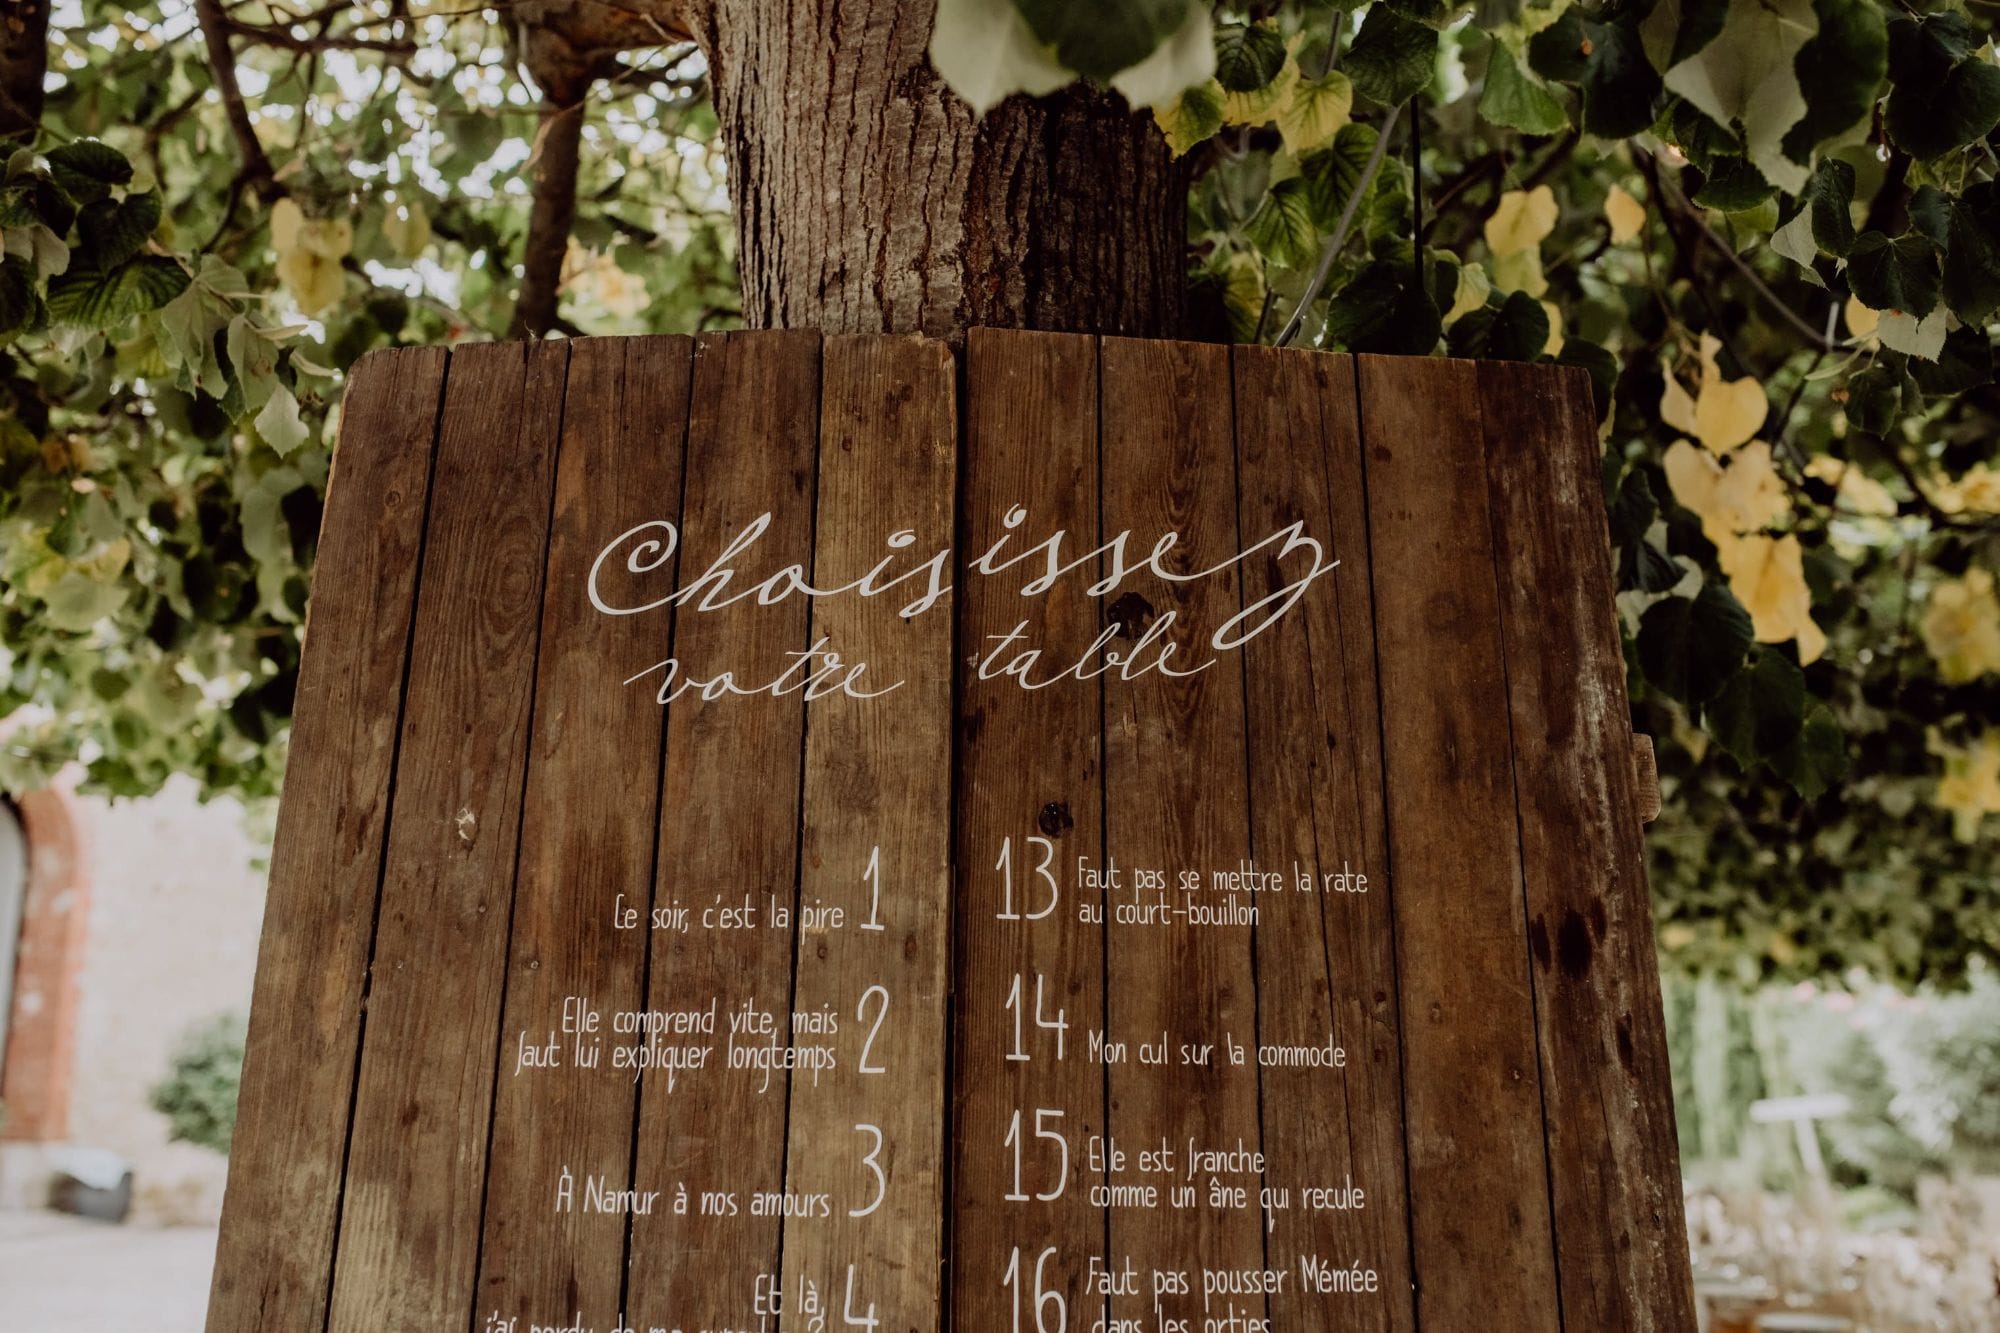 Choisissez
votre table
1
Ce soir, c'est la pire
2
Elle comprend vite, mais
faut lui expliquer longtemps
3
À Namur à nos amours
4
Et là,
j'ai perdu de ma
13
Faut pas se mettre la rate
au court-bouillon
14
Mon cul sur la commode
15
Elle est franche
comme un âne qui recule
16
Faut pas pousser Mémée
dans les orties